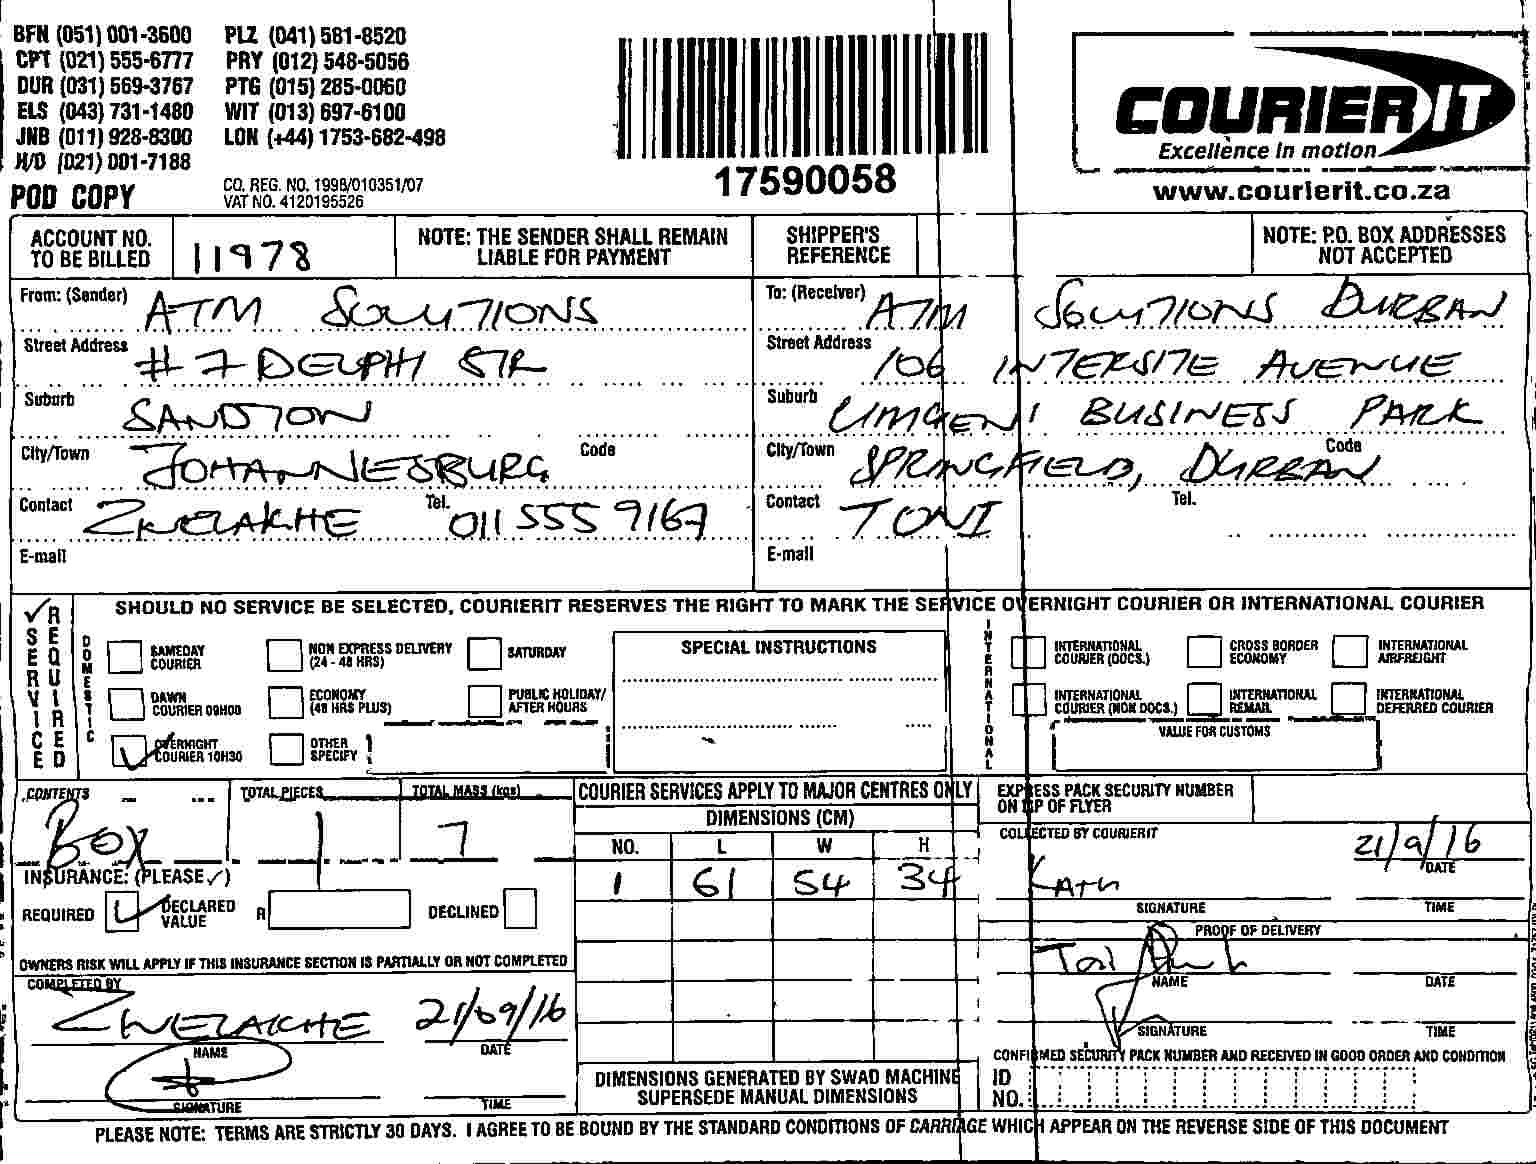 BFN (051) 001-3600 PLZ (041) 581-8520
CPT (021) 555-6777 PRY (012) 548-5056
DUR (031) 569-3767 PTG (015) 285-0060
ELS (043) 731-1480 WIT (013) 697-6100
JNB (011) 928-8300 LON (+44) 1753-682-498
H/O (021) 001-7188
POD COPY
CO. REG. NO. 1998/010351/07
VAT NO. 4120195526
17590058
COURIER IT
Excellence in motion
www.courierit.co.za
ACCOUNT NO. TO BE BILLED 11978
NOTE: THE SENDER SHALL REMAIN LIABLE FOR PAYMENT
SHIPPER'S REFERENCE
NOTE: P.O. BOX ADDRESSES NOT ACCEPTED
From: (Sender) ATM SOLUTIONS
Street Address #7 DELPHI STR
Suburb SANDTON
City/Town JOHANNESBURG Code
Contact ZWELAKHE Tel. 011 555 9167
E-mail
To: (Receiver) ATM SOLUTIONS DURBAN
Street Address 106 INTERSITE AVENUE
Suburb UMGENI BUSINESS PARK
City/Town SPRINGFIELD, DURBAN Code
Contact TONI Tel.
E-mail
SERVICE REQUIRED
SHOULD NO SERVICE BE SELECTED, COURIERIT RESERVES THE RIGHT TO MARK THE SERVICE OVERNIGHT COURIER OR INTERNATIONAL COURIER
DOMESTIC
SAMEDAY COURIER
NON EXPRESS DELIVERY (24 - 48 HRS)
SATURDAY
DAWN COURIER 09H00
ECONOMY (48 HRS PLUS)
PUBLIC HOLIDAY/ AFTER HOURS
OVERNIGHT COURIER 10H30
OTHER SPECIFY
SPECIAL INSTRUCTIONS
INTERNATIONAL
INTERNATIONAL COURIER (DOCS.)
CROSS BORDER ECONOMY
INTERNATIONAL AIRFREIGHT
INTERNATIONAL COURIER (NON DOCS.)
INTERNATIONAL REMAIL
INTERNATIONAL DEFERRED COURIER
VALUE FOR CUSTOMS
CONTENTS BOX
TOTAL PIECES 1
TOTAL MASS (kgs) 7
INSURANCE: (PLEASE ✓)
REQUIRED ✓ DECLARED VALUE R DECLINED
OWNERS RISK WILL APPLY IF THIS INSURANCE SECTION IS PARTIALLY OR NOT COMPLETED
COMPLETED BY
ZWELAKHE 21/09/16
NAME DATE
SIGNATURE TIME
COURIER SERVICES APPLY TO MAJOR CENTRES ONLY
DIMENSIONS (CM)
NO. L W H
1 61 54 34
DIMENSIONS GENERATED BY SWAD MACHINE SUPERSEDE MANUAL DIMENSIONS
EXPRESS PACK SECURITY NUMBER ON LIP OF FLYER
COLLECTED BY COURIERIT
21/9/16
DATE
SIGNATURE TIME
PROOF OF DELIVERY
Toni
NAME DATE
SIGNATURE TIME
CONFIRMED SECURITY PACK NUMBER AND RECEIVED IN GOOD ORDER AND CONDITION
ID NO.
PLEASE NOTE: TERMS ARE STRICTLY 30 DAYS. I AGREE TO BE BOUND BY THE STANDARD CONDITIONS OF CARRIAGE WHICH APPEAR ON THE REVERSE SIDE OF THIS DOCUMENT